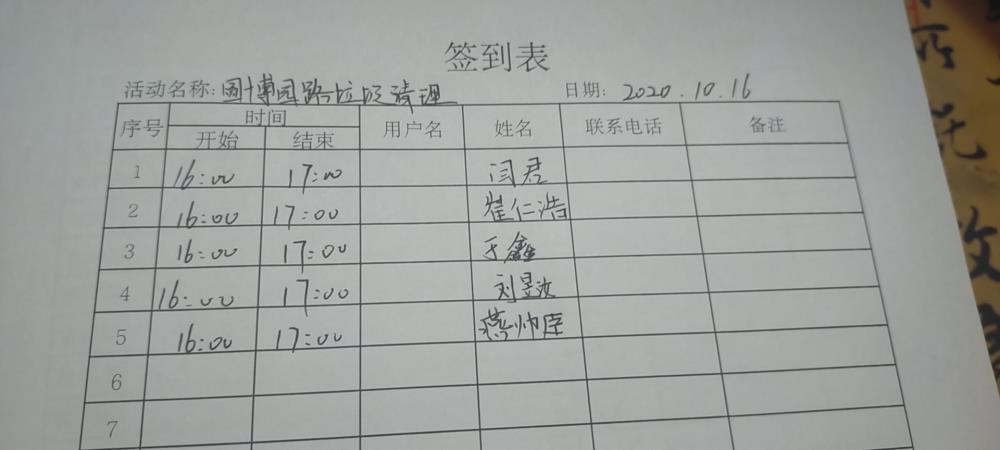 签到表
活动名称: 园博园路垃圾清理 日期: 2020.10.16
序号 时间 用户名 姓名 联系电话 备注
开始 结束
1 16:00 17:00 闫君
2 16:00 17:00 崔仁浩
3 16:00 17:00 于鑫
4 16:00 17:00 刘昱汝
5 16:00 17:00 蔡帅臣
6
7